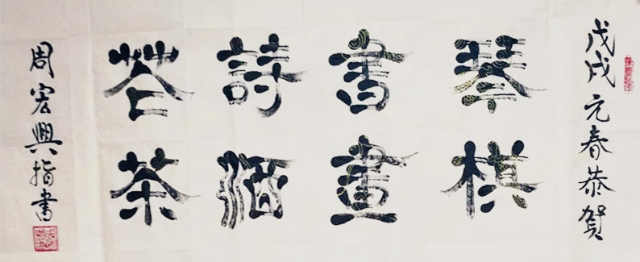 戊戌元春恭贺
琴棋
書畫
詩酒
花茶
周宏興指書